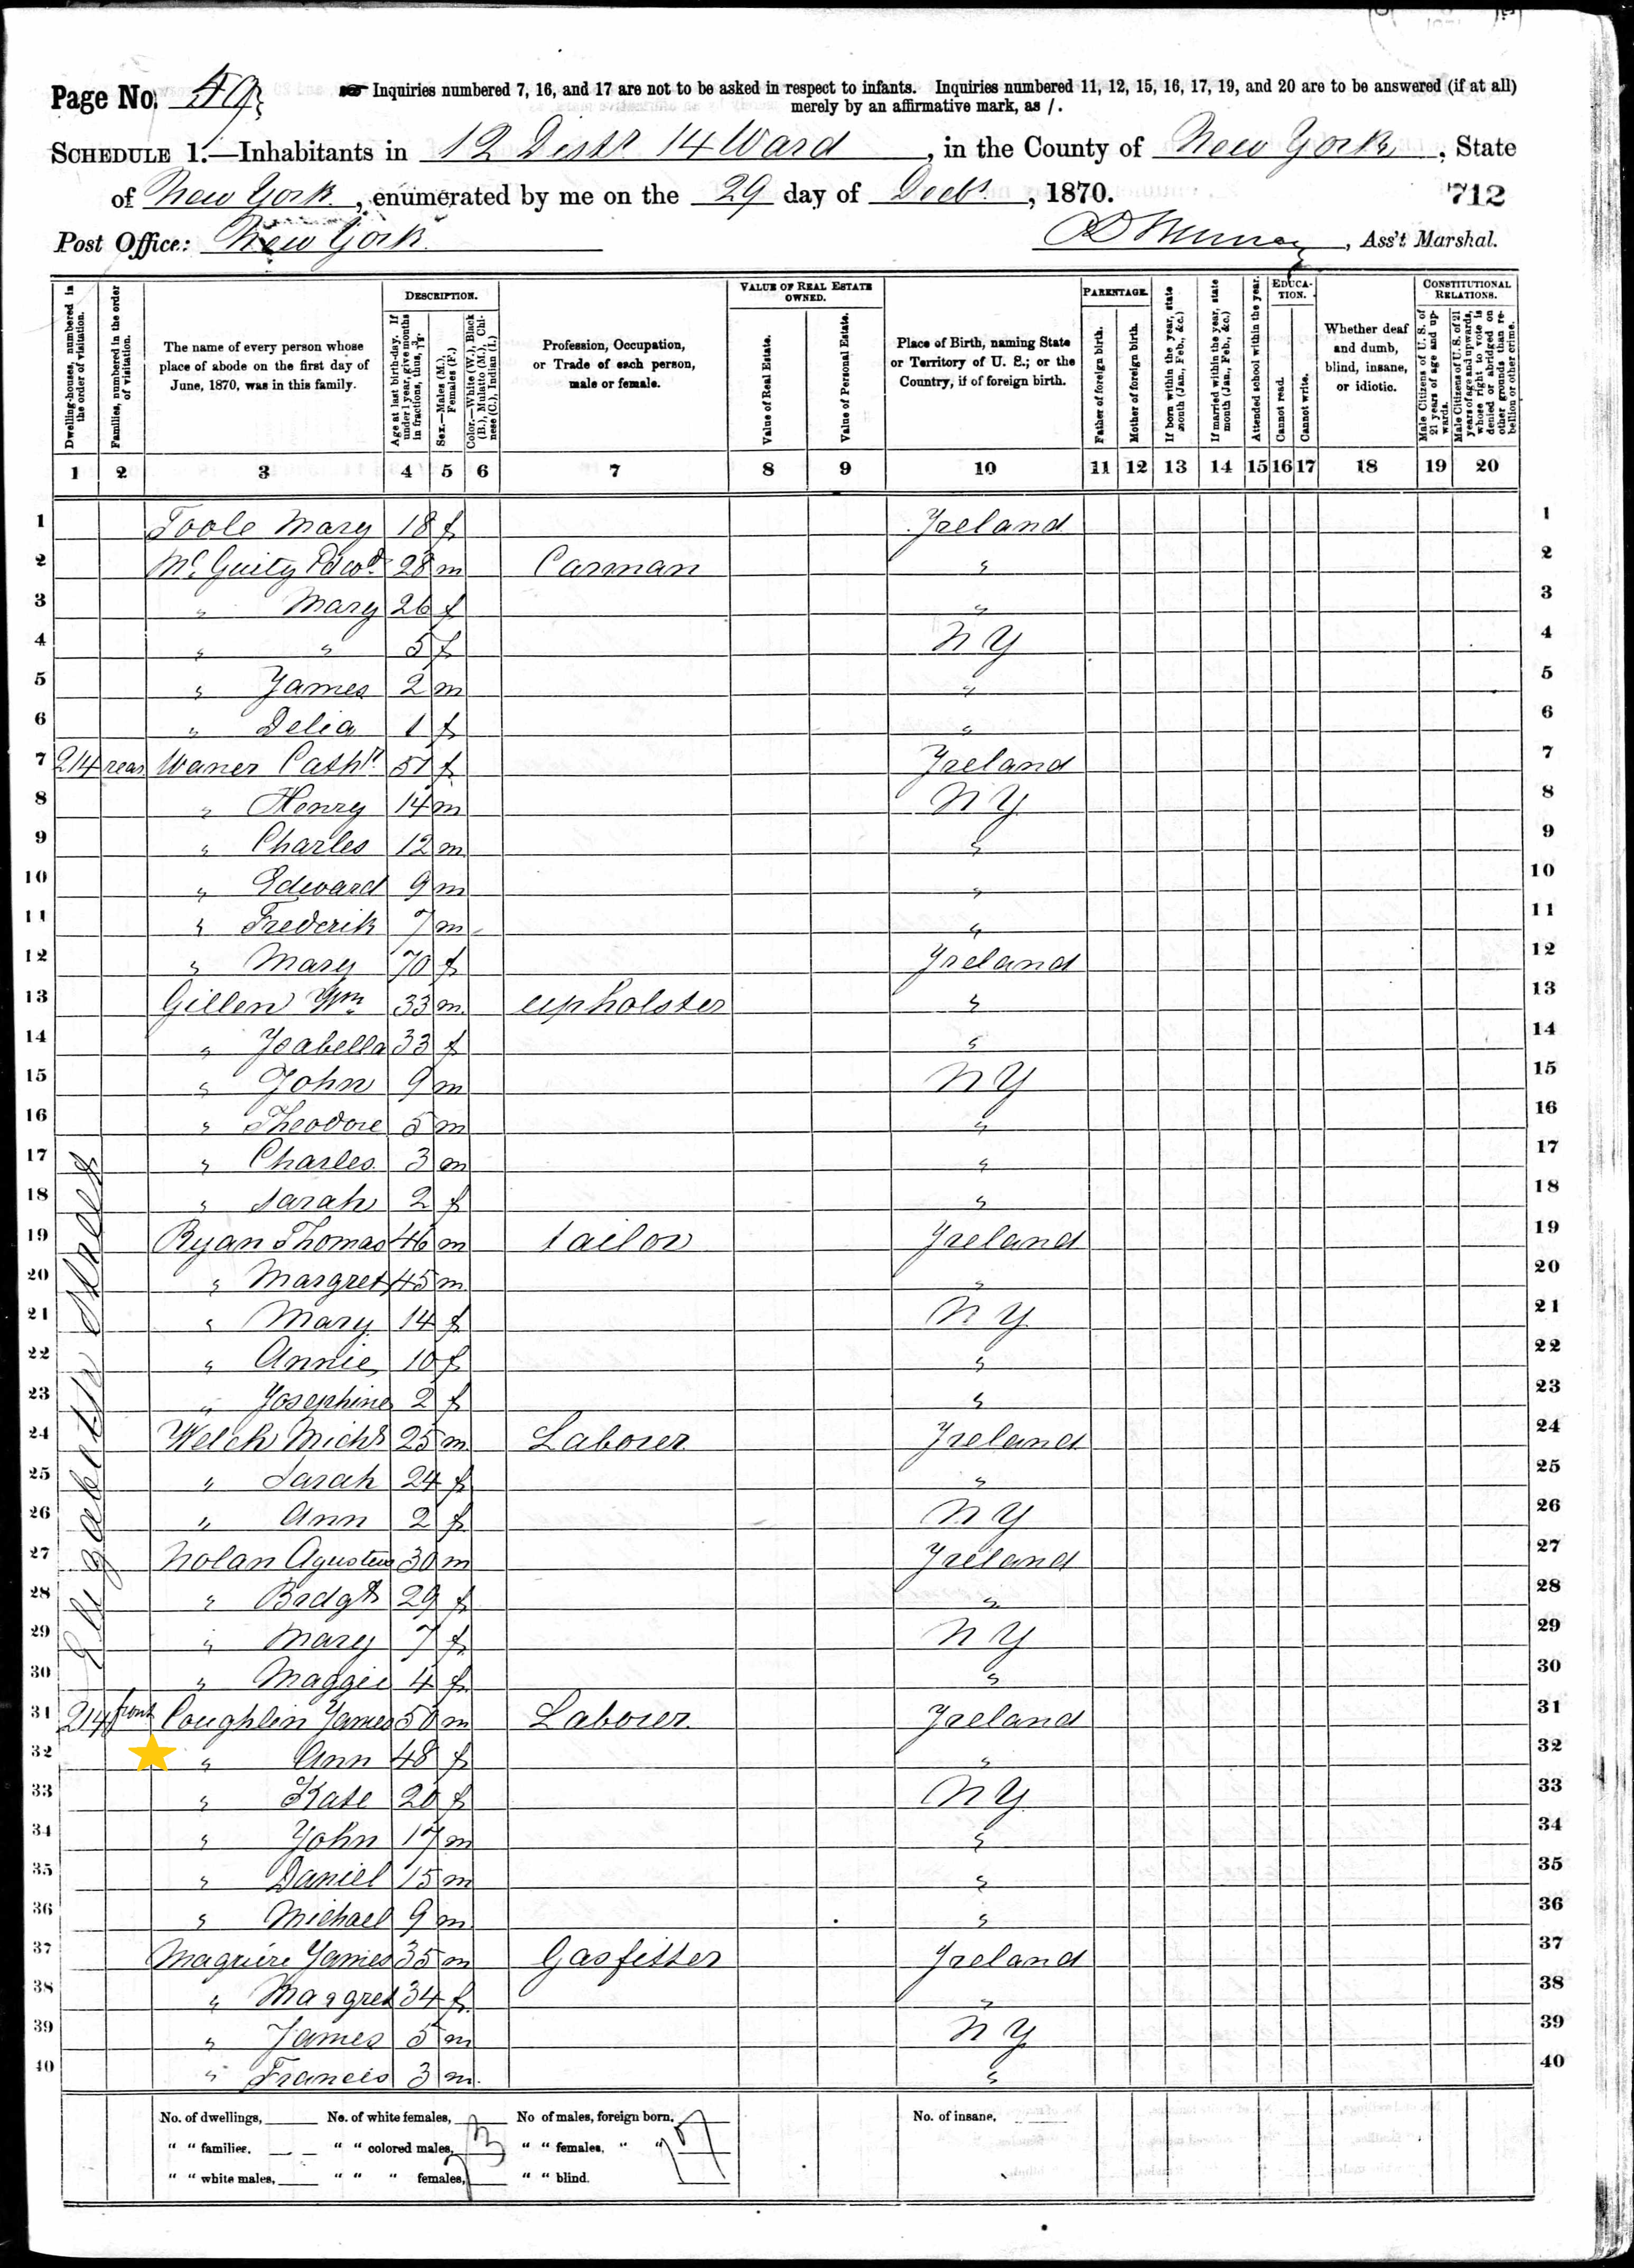 Page No. 49
Inquiries numbered 7, 16, and 17 are not to be asked in respect to infants. Inquiries numbered 11, 12, 15, 16, 17, 19, and 20 are to be answered (if at all)
merely by an affirmative mark, as /.
SCHEDULE 1.—Inhabitants in 12 Distr 14 Ward, in the County of New York, State
of New York, enumerated by me on the 29 day of Decbr, 1870.
712
Post Office: New York
Murray, Ass't Marshal.
Dwelling-houses, numbered in the order of visitation.
Families, numbered in the order of visitation.
The name of every person whose place of abode on the first day of June, 1870, was in this family.
DESCRIPTION.
Age at last birth-day. If under 1 year, give months in fractions, thus, 3/12.
Sex.—Males (M.), Females (F.)
Color.—White (W.), Black (B.), Mulatto (M.), Chinese (C.), Indian (I.)
Profession, Occupation, or Trade of each person, male or female.
VALUE OF REAL ESTATE OWNED.
Value of Real Estate.
Value of Personal Estate.
Place of Birth, naming State or Territory of U. S.; or the Country, if of foreign birth.
PARENTAGE.
Father of foreign birth.
Mother of foreign birth.
If born within the year, state month (Jan., Feb., &c.)
If married within the year, state month (Jan., Feb., &c.)
Attended school within the year.
EDUCATION.
Cannot read.
Cannot write.
Whether deaf and dumb, blind, insane, or idiotic.
CONSTITUTIONAL RELATIONS.
Male Citizens of U. S. of 21 years of age and upwards.
Male Citizens of U. S. of 21 years of age and upwards, whose right to vote is denied or abridged on other grounds than rebellion or other crime.
1 2 3 4 5 6 7 8 9 10 11 12 13 14 15 16 17 18 19 20
1 Toole Mary 18 f Ireland 1
2 McGuity Edwd 28 m Carman " 2
3 " Mary 26 f " 3
4 " " 5 f N Y 4
5 " James 2 m " 5
6 " Delia 1 f " 6
7 214 rear Waner Cathn 51 f Ireland 7
8 " Henry 14 m N Y 8
9 " Charles 12 m " 9
10 " Edward 9 m " 10
11 " Frederik 7 m " 11
12 " Mary 70 f Ireland 12
13 Gillen Wm 33 m upholster " 13
14 " Isabella 33 f " 14
15 " John 9 m N Y 15
16 " Theodore 5 m " 16
17 " Charles 3 m " 17
18 " Sarah 2 f " 18
19 Ryan Thomas 46 m tailor Ireland 19
20 " Margret 45 m " 20
21 " Mary 14 f N Y 21
22 " Annie 10 f " 22
23 " Josephine 2 f " 23
24 Welch Michl 25 m Laborer Ireland 24
25 " Sarah 24 f " 25
26 " Ann 2 f N Y 26
27 Nolan Agusteus 30 m Ireland 27
28 " Brdgt 29 f " 28
29 " Mary 7 f N Y 29
30 " Maggie 4 f " 30
31 214 front Coughlin James 50 m Laborer Ireland 31
32 " Ann 48 f " 32
33 " Kate 20 f N Y 33
34 " John 17 m " 34
35 " Daniel 15 m " 35
36 " Michael 9 m " 36
37 Maguire James 35 m Gasfitter Ireland 37
38 " Margret 34 f " 38
39 " James 5 m N Y 39
40 " Francis 3 m " 40
Elizabeth Street
No. of dwellings, No. of white females, No of males, foreign born, No. of insane,
" " families, " " colored males, " " females, " "
" " white males, " " " females, " " blind.